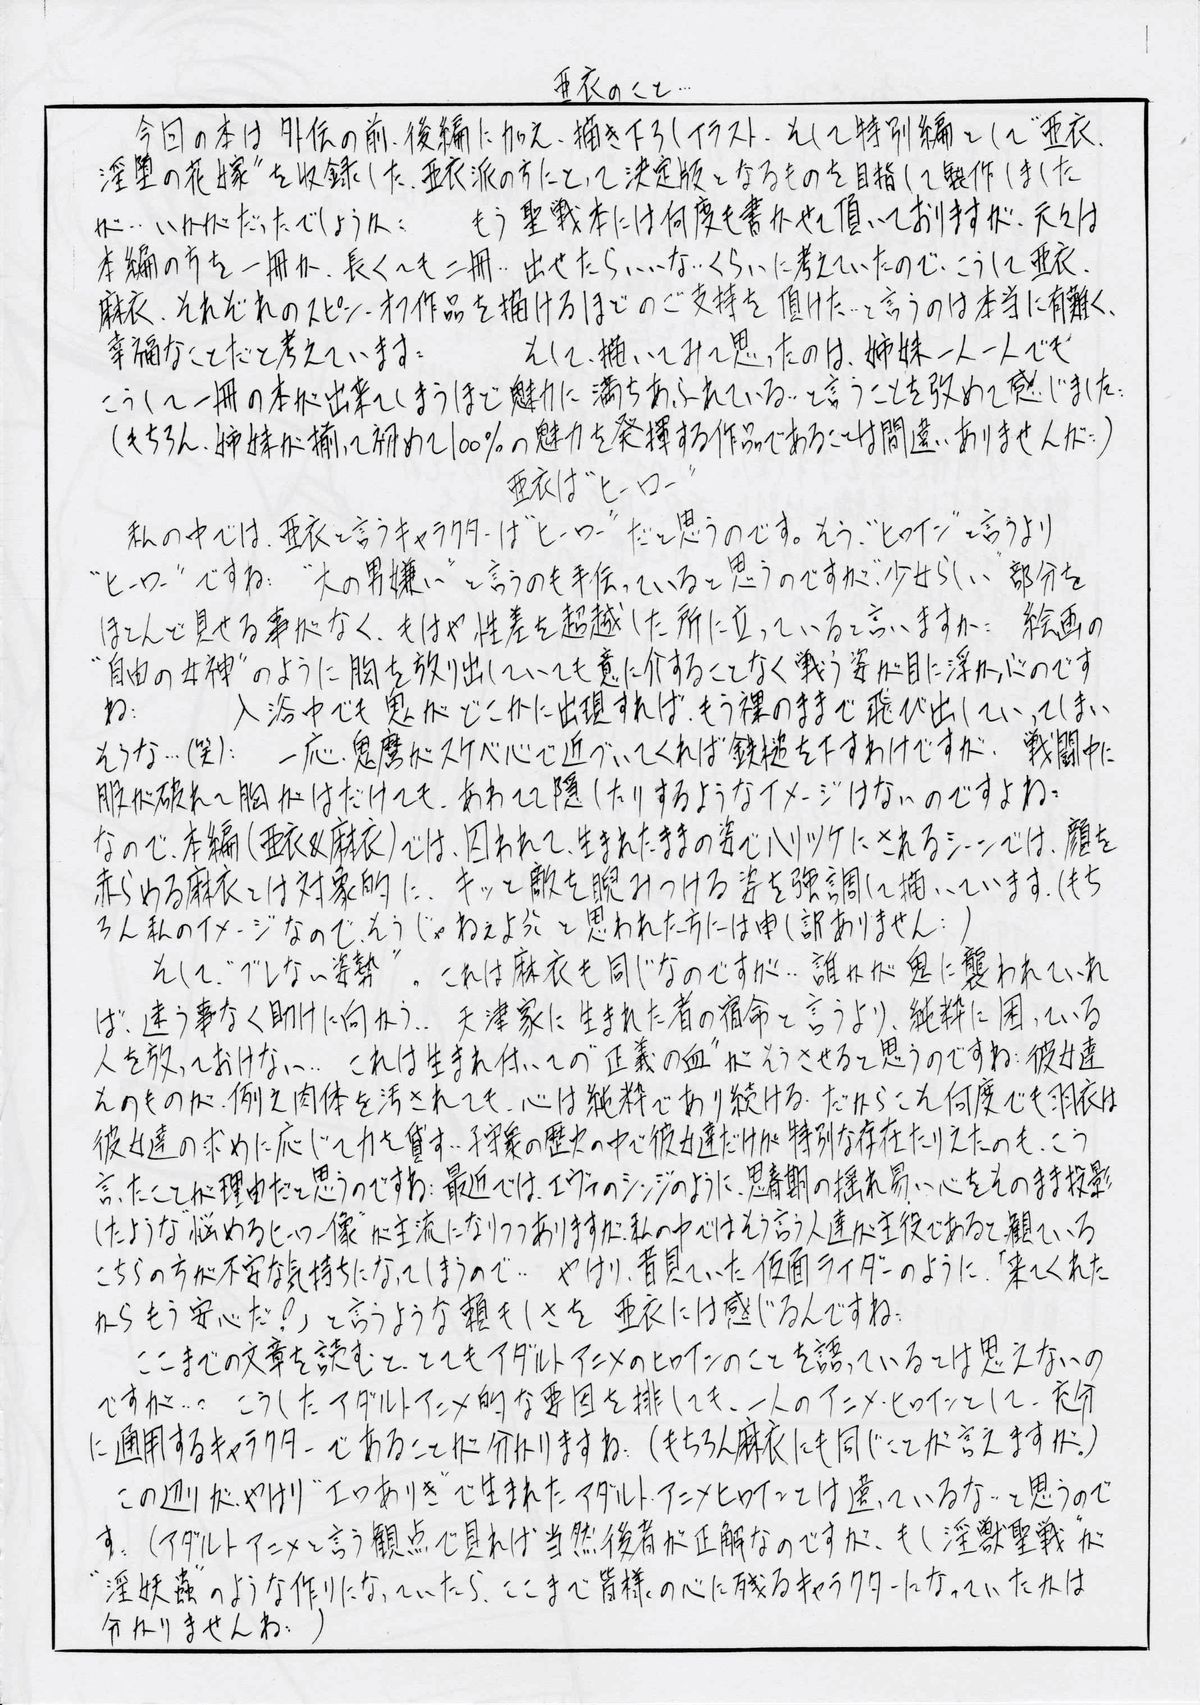 亜衣のこと…
今回の本は外伝の前、後編に加え、描き下ろしイラスト、そして特別編として"亜衣、
淫堕の花嫁"を収録した、亜衣派の方にとって決定版となるものを目指して製作しました
が…いかがだったでしょうか… もう聖戦本には何度も書かせて頂いておりますが、元々は
本編の方を一冊か、長くても二冊…出せたらいいな…くらいに考えていたので、こうして亜衣、
麻衣、それぞれのスピン・オフ作品を描けるほどのご支持を頂けた…と言うのは本当に有難く、
幸福なことだと考えています… そして、描いてみて思ったのは、姉妹一人一人でも
こうして一冊の本が出来てしまうほど魅力に満ちあふれている…と言うことを改めて感じました…
(もちろん、姉妹が揃って初めて100%の魅力を発揮する作品であることは間違いありませんが…)
亜衣は"ヒーロー"
私の中では、亜衣と言うキャラクターは"ヒーロー"だと思うのです。そう、"ヒロイン"と言うより
"ヒーロー"ですね… "大の男嫌い"と言うのも手伝っていると思うのですが"少女らしい"部分を
ほとんど見せる事がなく、もはや性差を超越した所に立っていると言いますか… 絵画の
"自由の女神"のように胸を放り出していても意に介することなく戦う姿が目に浮かぶのです
ね… 入浴中でも鬼がどこかに出現すれば、もう裸のままで飛び出していってしまい
そうな…(笑)… 一応、鬼麿がスケベ心で近づいてくれば鉄槌を下すわけですが、戦闘中に
服が破れて胸がはだけても、あわてて隠したりするようなイメージはないのですよね…
なので、本編(亜衣&麻衣)では、囚われて、生まれたままの姿でハリツケにされるシーンでは、顔を
赤らめる麻衣とは対象的に、キッと敵を睨みつける姿を強調して描いています。(もち
ろん私のイメージなので、そうじゃねえよ!と思われた方には申し訳ありません…)
そして"ブレない姿勢"。これは麻衣も同じなのですが…誰かが鬼に襲われていれ
ば、迷う事なく助けに向かう… 天津家に生まれた者の宿命と言うより、純粋に困っている
人を放っておけない… これは生まれ付いての"正義の血"がそうさせると思うのですね…彼女達
そのものが、例え肉体を汚されても、心は純粋であり続ける…だからこそ何度でも羽衣は
彼女達の求めに応じて力を貸す…子守衆の歴史の中で彼女達だけが特別な存在たりえたのも、こう
言ったことが理由だと思うのですね…最近では、エヴァのシンジのように、思春期の揺れ易い心をそのまま投影
したような"悩めるヒーロー像"が主流になりつつありますが、私の中ではそう言う人達が主役であると、観ている
こちらの方が不安な気持ちになってしまうので… やはり、昔見ていた仮面ライダーのように、「来てくれた
からもう安心だ!」と言うような頼もしさを 亜衣には感じるんですね…
ここまでの文章を読むと、とてもアダルトアニメのヒロインのことを語っているとは思えないの
ですが…。 こうしたアダルトアニメ的な要因を排しても、一人のアニメ・ヒロインとして、充分
に通用するキャラクターであることが分かりますね…(もちろん麻衣にも同じことが言えますが。)
この辺りが、やはり"エロありき"で生まれたアダルト・アニメヒロインとは違っているな…と思うので
す…(アダルトアニメと言う観点で見れば当然後者が正解なのですが、もし"淫獣聖戦"が
"淫妖蟲"のような作りになっていたら、ここまで皆様の心に残るキャラクターになっていたかは
分かりませんね…)